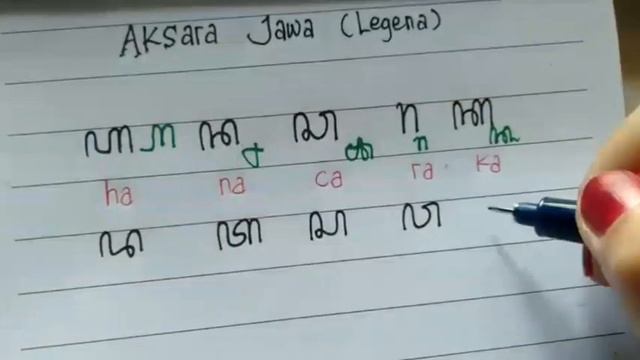 AKsara Jawa (Legena)
ꦲ ꧀ꦲ ꦤ ꧀ꦤ ꦕ ꧀ꦕ ꦫ ꧀ꦫ ꦏ ꧀ꦏ
ha na ca ra ka
ꦢ ꦠ ꦱ ꦮ